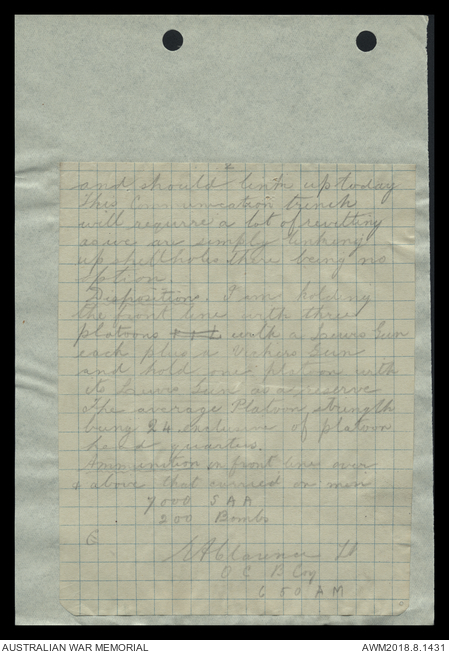 2
and should link up today
This Communication trench
will require a lot of revetting
as we are simply linking
up shellholes there being no
option.
Dispositions. I am holding
the front line with three
platoons with a Lewis Gun
each plus a Vickers Gun
and hold one platoon with
its Lewis Gun as a reserve
The average Platoon strength
being 24 inclusive of platoon
head quarters.
Ammunition in front line over
& above that carried on men
7000 SAA
200 Bombs
EA Clarence Lt
O C B Coy
6 50 A M
AUSTRALIAN WAR MEMORIAL
AWM2018.8.1431